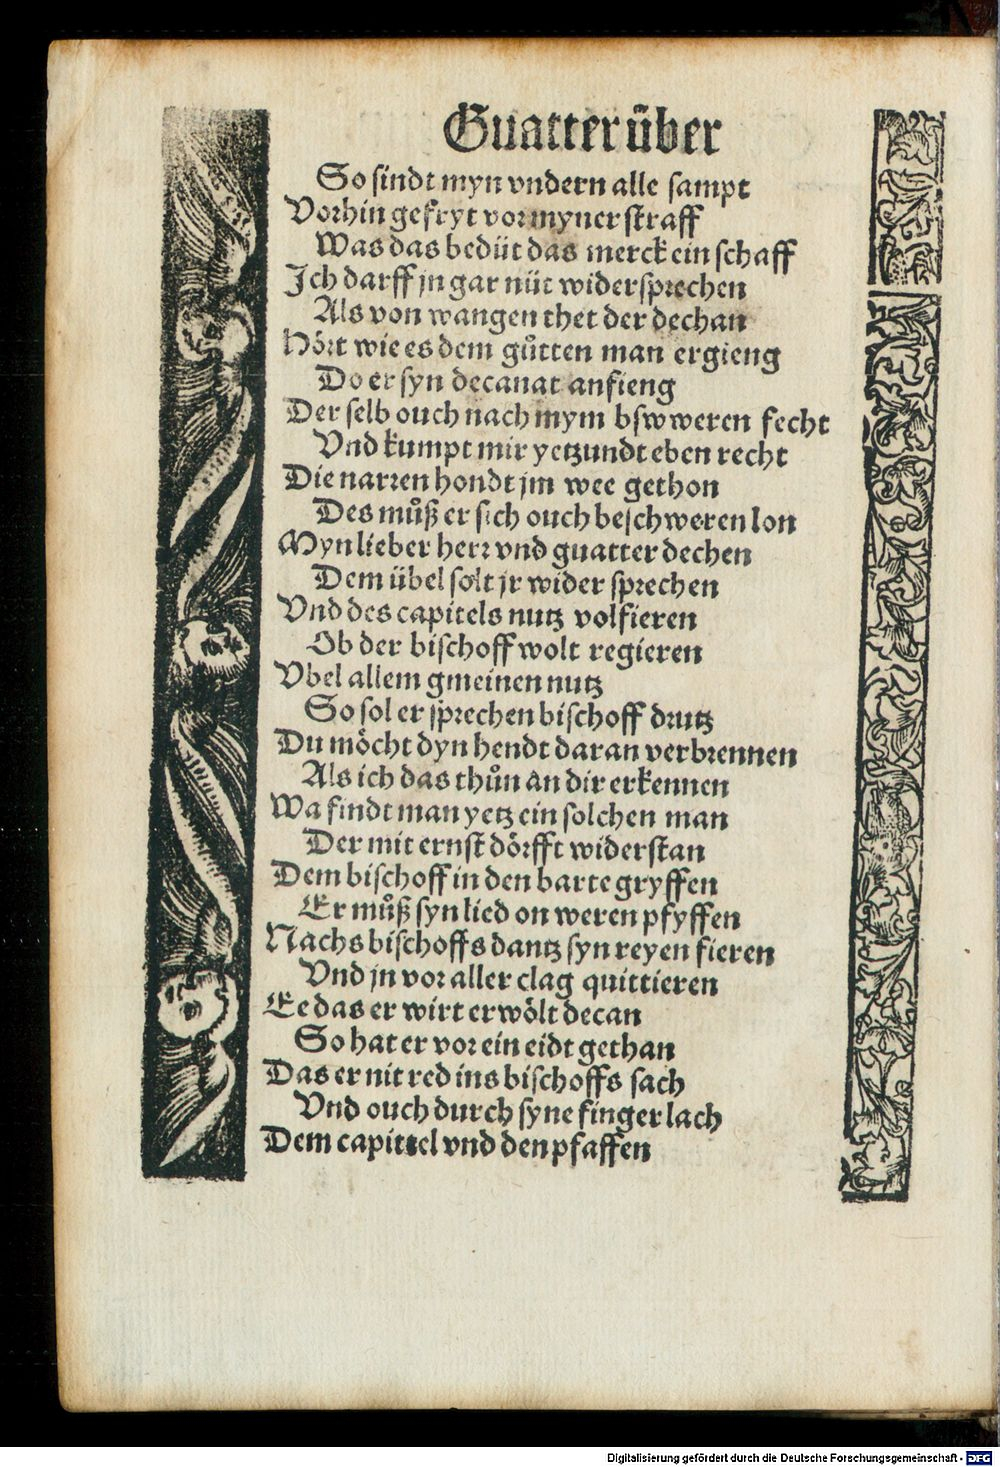 Guatter über
So sindt myn vndern alle sampt
Vorhin gefryt vor myner straff
Was das bedüt das merck ein schaff
Ich darff jn gar nüt widersprechen
Als von wangen thet der dechan
Hört wie es dem gůtten man ergieng
Do er syn decanat anfieng
Der selb ouch nach mym bswweren fecht
Vnd kumpt mir yetzundt eben recht
Die narren hondt jm wee gethon
Des můß er sich ouch beschweren lon
Myn lieber herr vnd guatter dechen
Dem übel solt jr wider sprechen
Vnd des capitels nutz volfieren
Ob der bischoff wolt regieren
Vbel allem gmeinen nutz
So sol er sprechen bischoff drutz
Du möcht dyn hendt daran verbrennen
Als ich das thůn an dir erkennen
Wa findt man yetz ein solchen man
Der mit ernst dörfft widerstan
Dem bischoff in den barte gryffen
Er můß syn lied on weren pfyffen
Nachs bischoffs dantz syn reyen fieren
Vnd jn vor aller clag quittieren
Ee das er wirt erwölt decan
So hat er vor ein eidt gethan
Das er nit red ins bischoffs sach
Vnd ouch durch syne finger lach
Dem capittel vnd den pfaffen
Digitalisierung gefördert durch die Deutsche Forschungsgemeinschaft - DFG